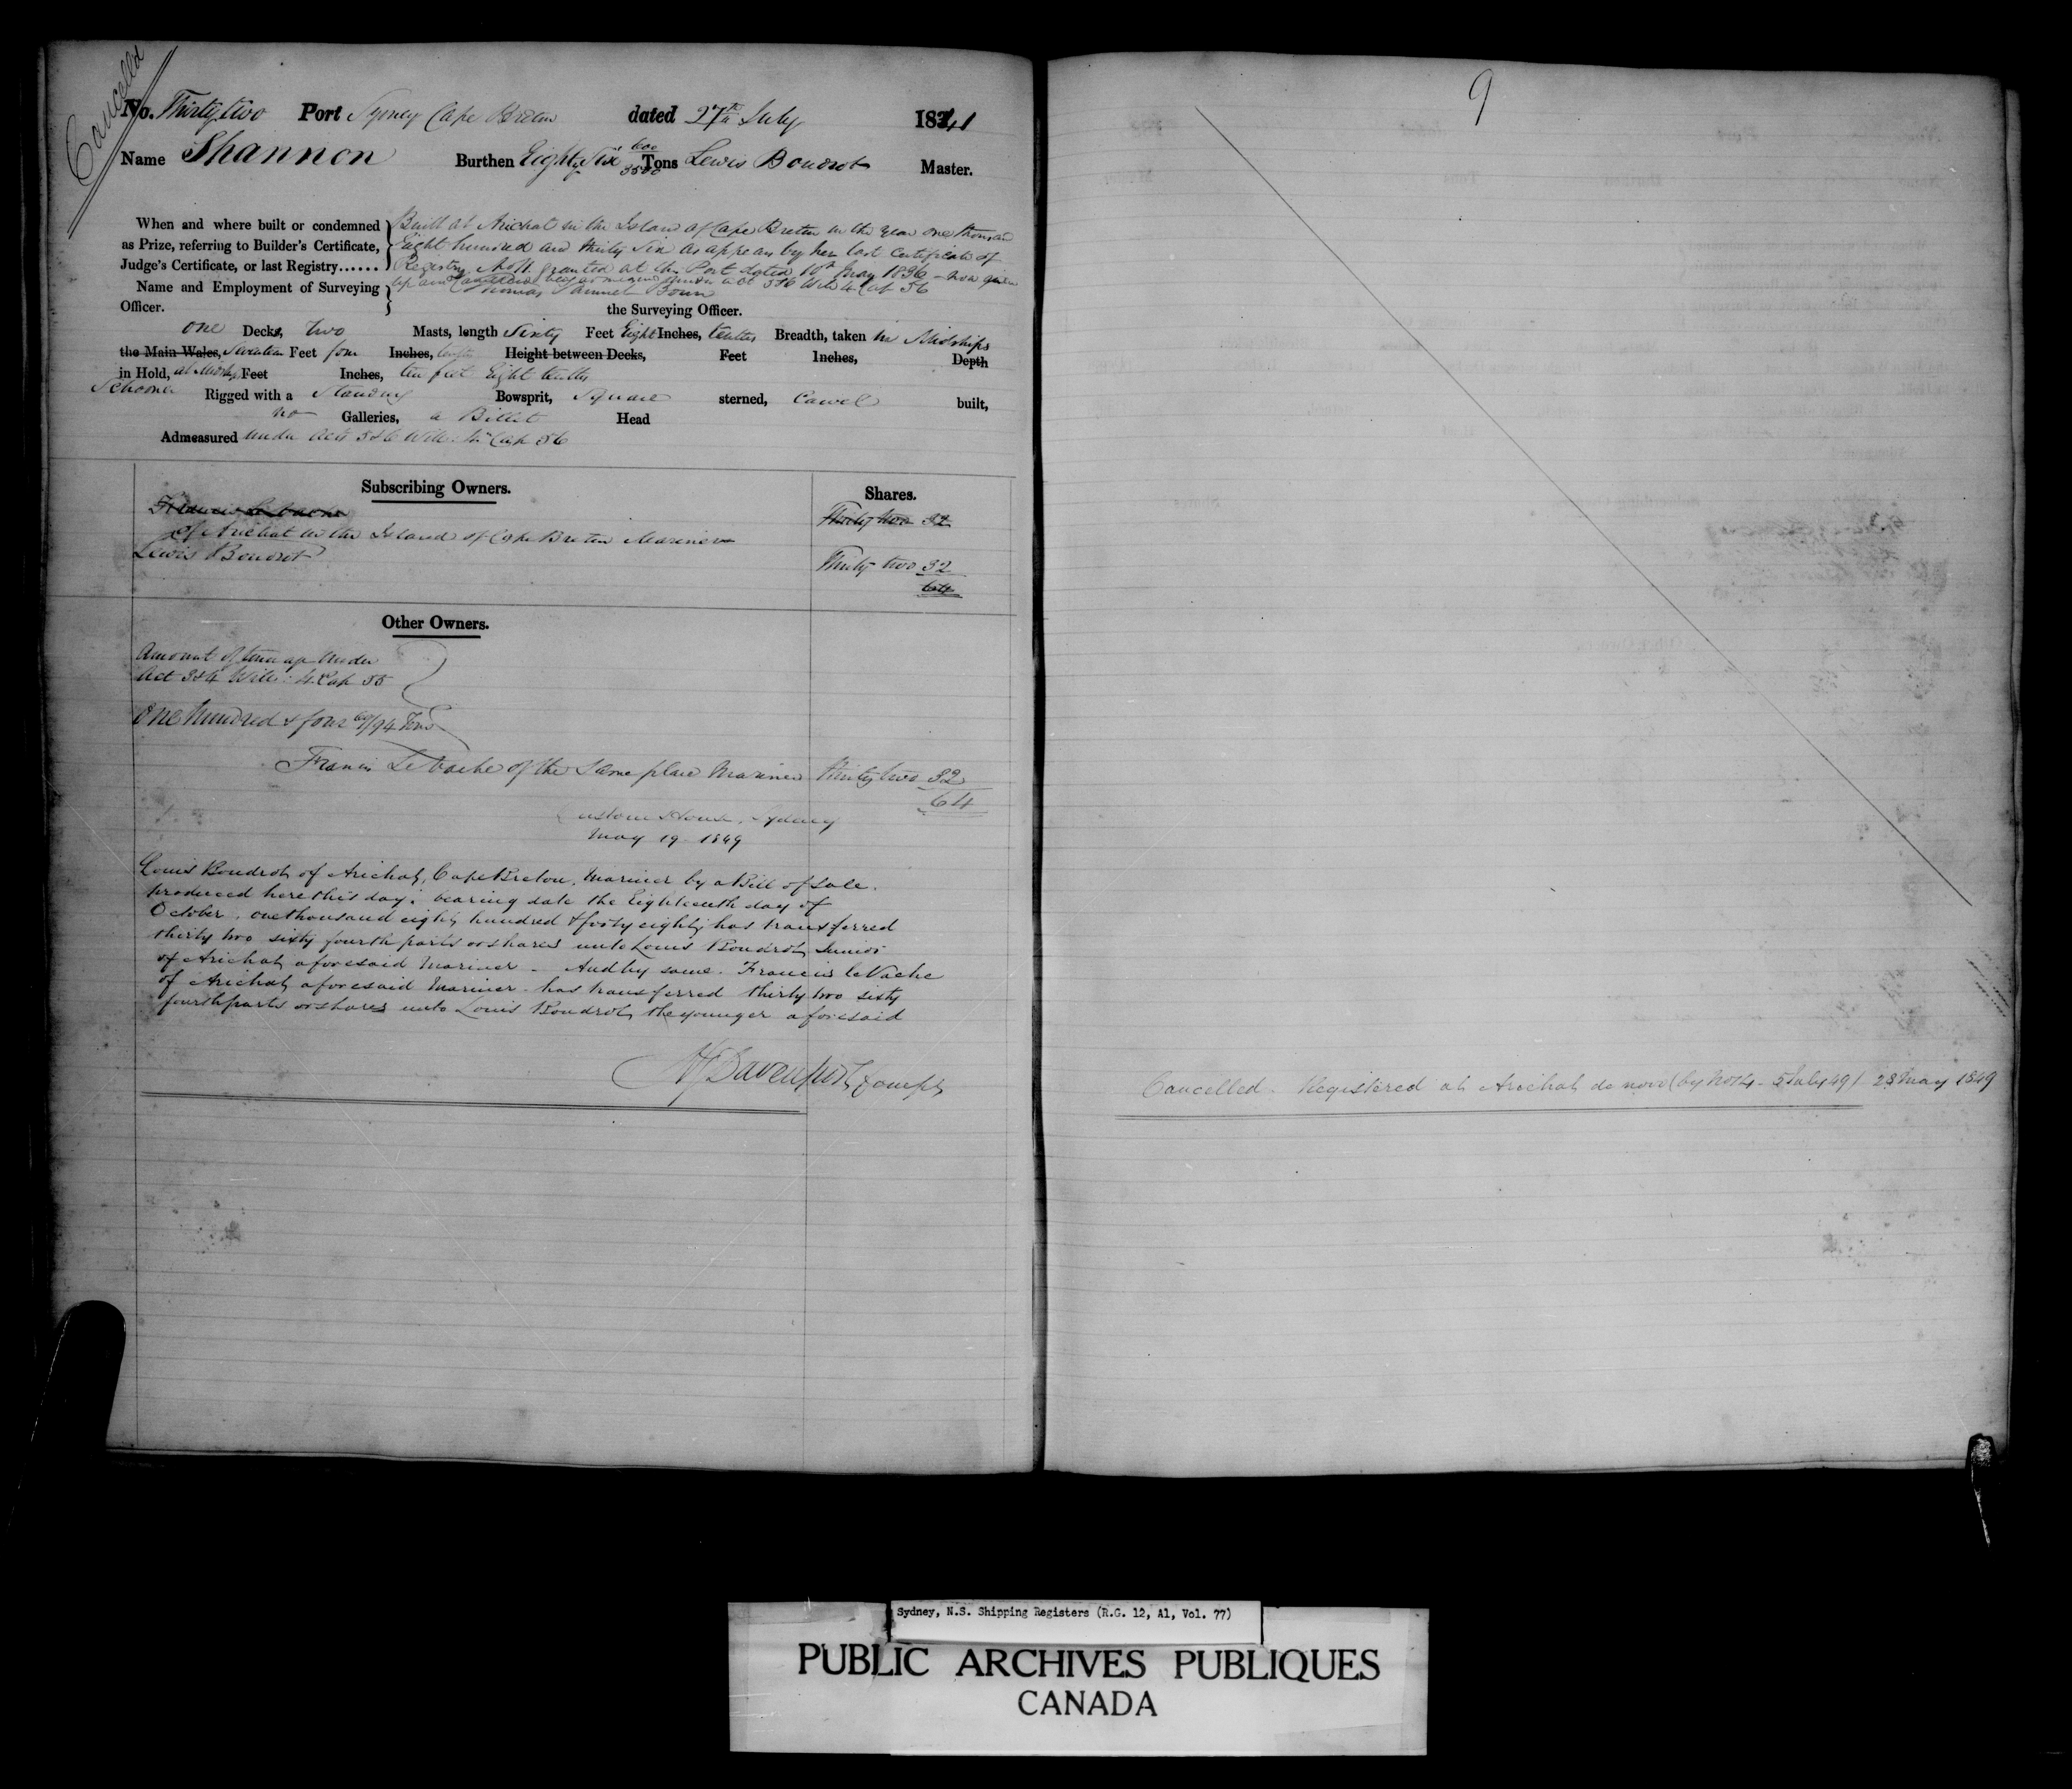 Cancelled
No. Thirty two Port Sydney Cape Breton dated 27th July 1841
Name Shannon Burthen Eighty Six 600/3500 Tons Lewis Boudrot Master.
When and where built or condemned as Prize, referring to Builder's Certificate, Judge's Certificate, or last Registry......
Built at Arichat in the Island of Cape Breton in the year one thousand
Eight hundred and thirty Six as appears by her last Certificate of
Registry No 11 granted at this Port dated 10th May 1836 - now given
up and Cancelled under Act 5&6 Will 4 Cap 56
Name and Employment of Surveying Officer.
Thomas Samuel Bown
the Surveying Officer.
one Decks, two Masts, length Sixty Feet Eight Inches, tenths Breadth, taken in Midships
the Main Wales, Seventeen Feet four Inches, tenths Height between Decks, Feet Inches, Depth
in Hold, at Midships Feet Inches, ten feet Eight tenths
Schooner Rigged with a Standing Bowsprit, Square sterned, Carvel built,
no Galleries, a Billet Head
Admeasured under Acts 5&6 Will. 4th Cap 56
Subscribing Owners.
Shares.
Thirty two 32
of Arichat in the Island of Cape Breton Mariners
Lewis Boudrot
Thirty two 32
64
Other Owners.
Amount of Tonnage under
Act 3&4 Will: 4 Cap 55
One hundred & four 69/94 Tons
Francis LeVache of the Same place Mariner Thirty two 32
64
Custom House, Sydney
May 19 1849
Louis Boudrot of Arichat, Cape Breton, Mariner by a Bill of Sale.
produced here this day, bearing date the Eighteenth day of
October, one thousand eight hundred & forty eight, has transferred
thirty two sixty fourth parts or shares unto Louis Boudrot, Junior
of Arichat aforesaid Mariner - And by same. Francis leVache
of Arichat, aforesaid Mariner has transferred thirty two sixty
fourth parts or shares unto Louis Boudrot, the younger aforesaid
Davenport, Compt
9
Cancelled - Registered at Arichat de novo (by No 14 - 5 July 49) 28 May 1849
Sydney, N.S. Shipping Registers (R.G. 12, A1, Vol. 77)
PUBLIC ARCHIVES PUBLIQUES
CANADA